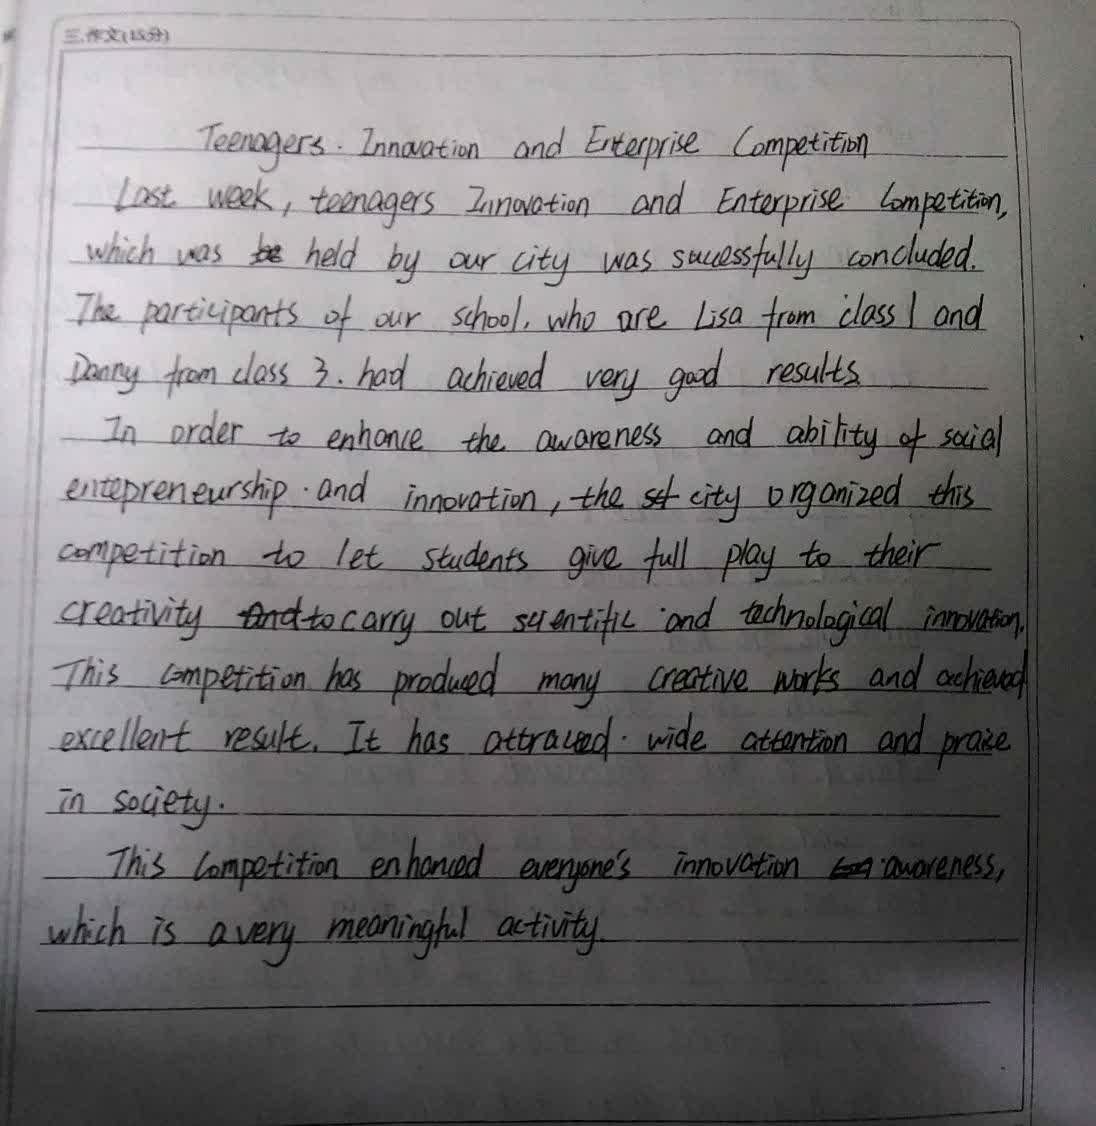 三.作文(15分)
Teenagers. Innovation and Enterprise Competition
Last week, teenagers Innovation and Enterprise Competition,
which was be held by our city was successfully concluded.
The participants of our school. who are Lisa from class 1 and
Danny from class 3. had achieved very good results.
In order to enhance the awareness and ability of social
entepreneurship. and innovation, the st city organized this
competition to let students give full play to their
creativity and to carry out scientific and technological innovation.
This competition has produced many creative works and achieved
excellent result. It has attracted. wide attention and praise
in society.
This Competition enhanced everyone's innovation awareness,
which is a very meaningful activity.